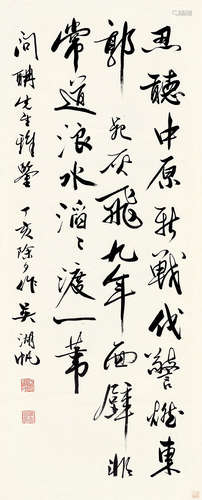 忍聽中原龍戰伐驚燃東
郭死灰飛九年面壁非
常道浪水滔滔渡一葦
問聃先生雅鑒　丁亥除夕作　吳湖帆